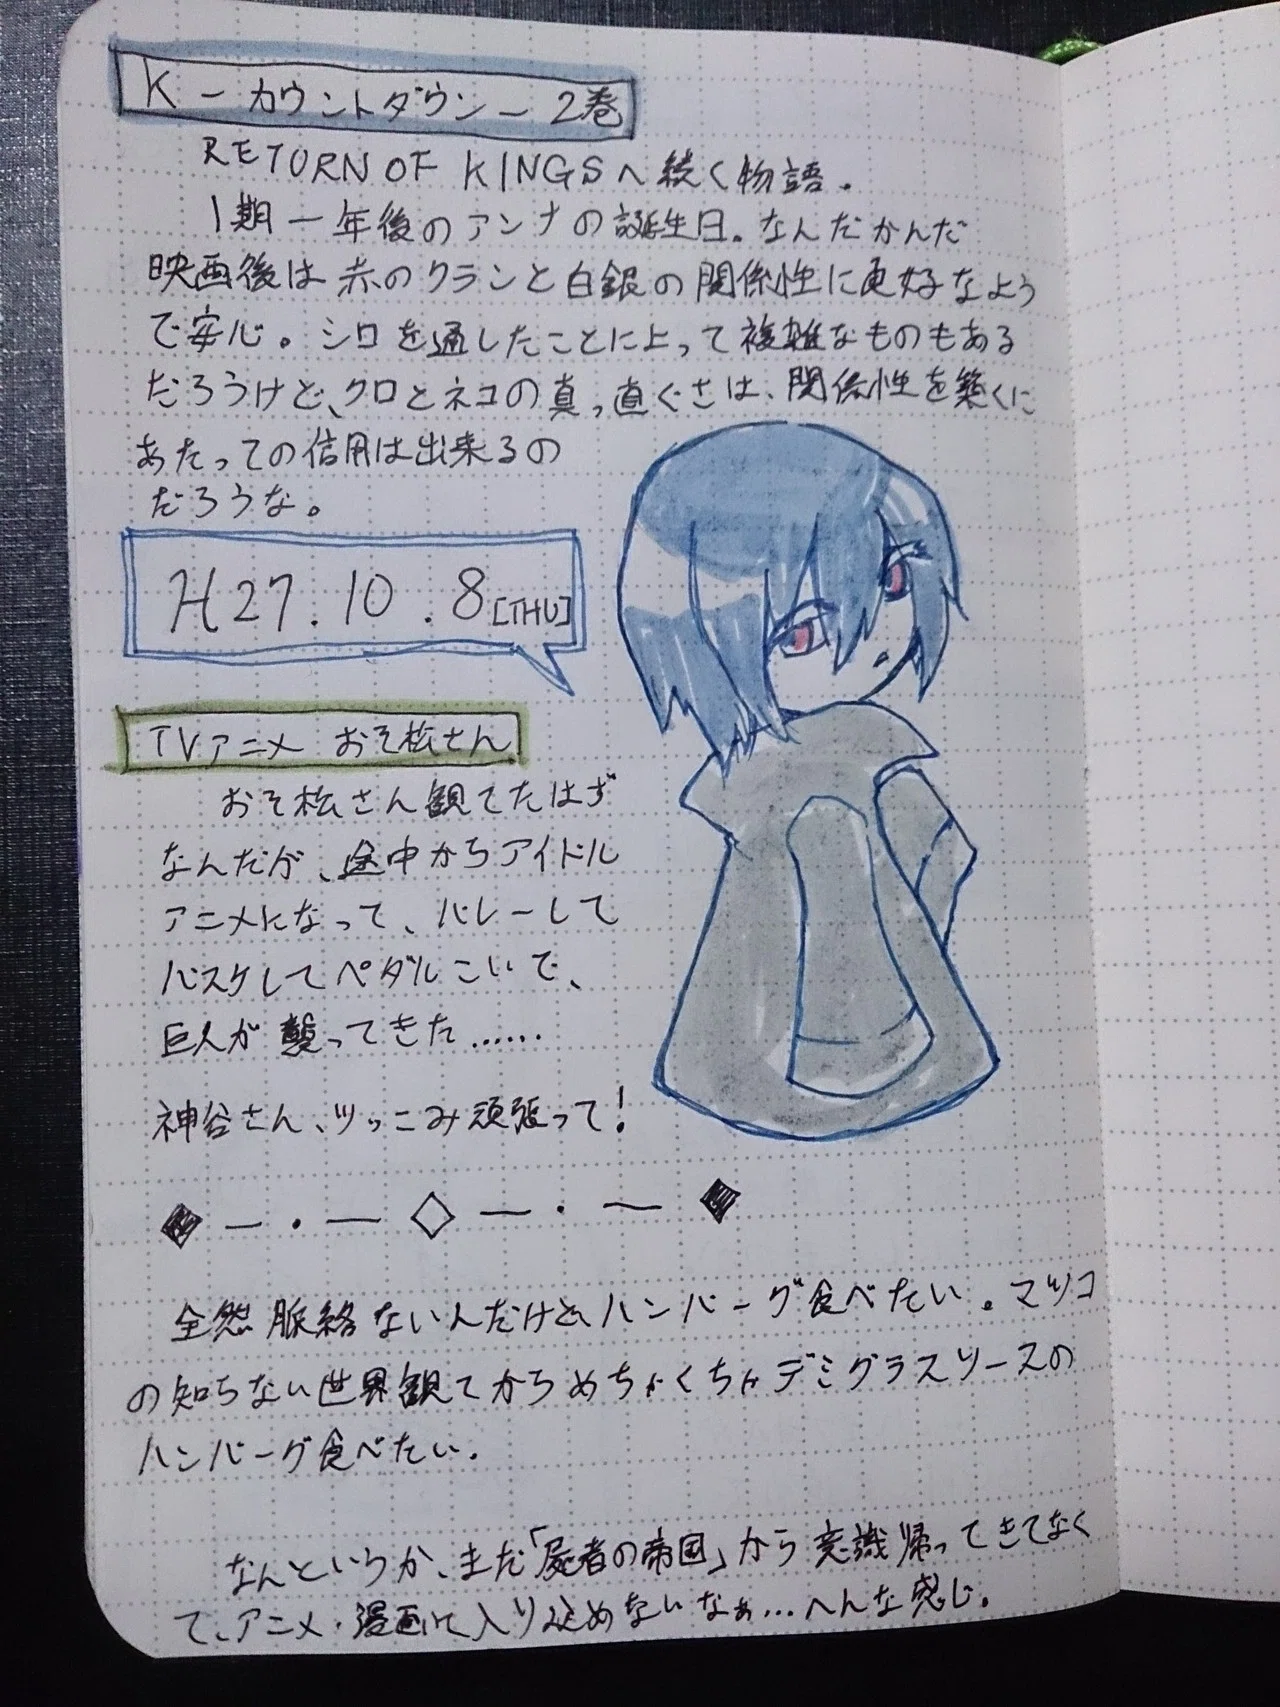 K ー カウントダウン ー 2巻
RETURN OF KINGSへ続く物語.
1期一年後のアンナの誕生日。なんだかんだ
映画後は赤のクランと白銀の関係性に良好なよう
で安心。シロを通したことによって複雑なものもある
だろうけど、クロとネコの真っ直ぐさは、関係性を築くに
あたっての信用は出来るの
だろうな。
H27.10.8[THU]
TVアニメ おそ松さん
おそ松さん観てたはず
なんだが、途中からアイドル
アニメになって、バレーして
バスケしてペダルこいで、
巨人が襲ってきた……
神谷さん、ツッこみ頑張って!
全然脈絡ないんだけど、ハンバーグ食べたい。マツコ
の知らない世界観てからめちゃくちゃデミグラスソースの
ハンバーグ食べたい.
なんというか、まだ「屍者の帝国」から意識帰ってきてなく
て、アニメ・漫画に入り込めないなぁ…へんな感じ.